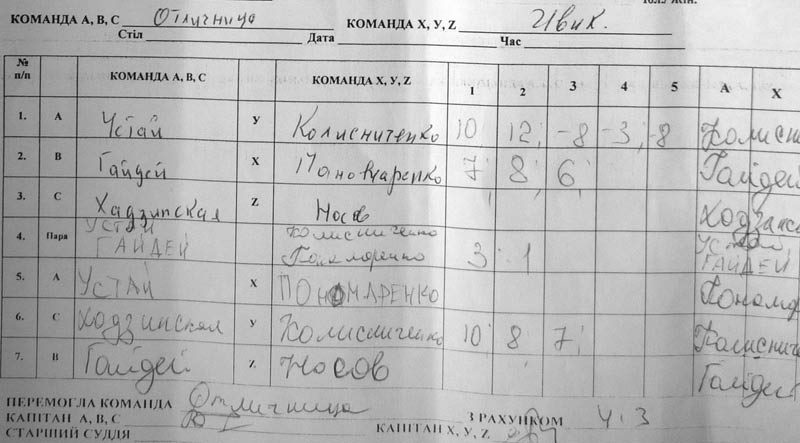 КОМАНДА А, В, С Отличница КОМАНДА Х, У, Z Ивик.
Стіл Дата Час
№ п/п КОМАНДА А, В, С КОМАНДА Х, У, Z 1 2 3 4 5 А Х
1. А Устай У Колисниченко 10, 12, -8 -3, -8 Колисн
2. В Гайдей Х Пономаренко 7, 8, 6, Гайдей
3. С Хадзинская Z Носов Ходзинс
4. Пара УСТАЙ ГАЙДЕЙ Колисниченко Пономаренко 3 1 УСТАЙ ГАЙДЕЙ
5. А УСТАЙ Х ПОНОМАРЕНКО Поном
6. С Ходзинская У Колисниченко 10, 8, 7, Колиснич
7. В Гайдей Z Носов Гайдей
ПЕРЕМОГЛА КОМАНДА Отличница З РАХУНКОМ 4:3
КАПІТАН А, В, С КАПІТАН Х, У, Z
СТАРШИЙ СУДДЯ